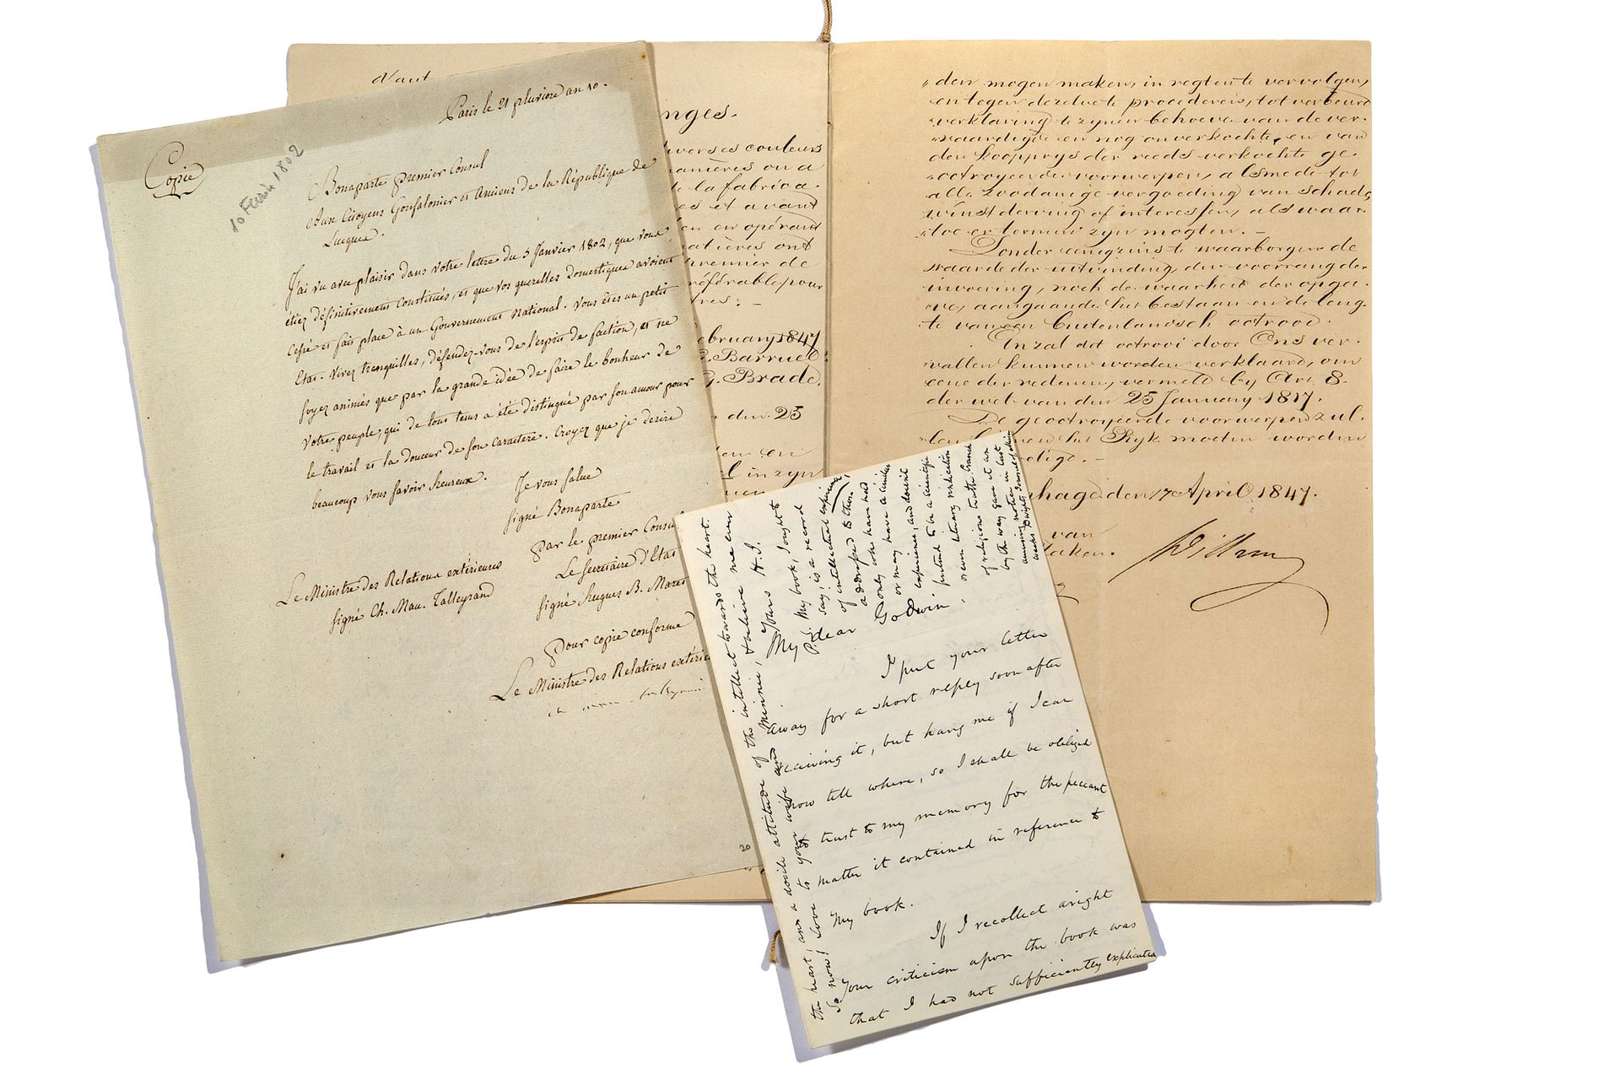 Paris le 21 pluviose an 10.
Copie
10 Février 1802
Bonaparte premier Consul
Aux Citoyens Gonfalonier et Anciens de la République de
Lucques.
J'ai vu avec plaisir dans votre lettre du 5 Janvier 1802, que vous
étiez définitivement constitués, et que vos querelles domestiques avoient
cessé et fait place à un Gouvernement National. Vous êtes un petit
Etat. Vivez tranquilles, défendez-vous de l'esprit de faction, et ne
soyez animés que par la grande idée de faire le bonheur de
votre peuple, qui de tous tems a été distingué par son amour pour
le travail et la douceur de son caractère. Croyez que je desire
beaucoup vous savoir heureux.
Je vous salue
signé Bonaparte
Par le premier Consul
Le Secretaire d'Etat
signé Hugues B. Maret
Le Ministre des Relations extérieures
signé Ch. Mau. Talleyrand
Pour copie conforme
Le Ministre des Relations extérie
20
d'aut
nges.
iverses couleurs
manières on a
de la fabrica-
es et avant
en en opérant
matières ont
premier de
référable pour
tres. —
ebruary 1847
Barruel
J. Brade.
den 25
en en
l in zyn
den mogen maken, in regten te vervolgen,
en tegen dezelve te procederen, tot verbeurd
verklaring te zynen behoeve van de ver-
vaardigde en nog onverkochte, en van
den koopprys der reeds verkochte ge-
octroyeerde voorwerpen, alsmede tot
alle zoodanige vergoeding van schade,
winstderving of interessen, als waar-
toe er termen zyn mogten. —
Zonder eenigzins te waarborgen de
waarde der uitvinding den voorrang der
invoering, noch de waarheid der opga-
ve, aangaande het bestaan en de leng-
te van een buitenlandsch octrooi.
En zal dit octrooi door Ons ver-
vallen kunnen worden verklaard, om
eene der redenen, vermeld by Art 8.
der wet van den 25 January 1817.
De geoctroyeerde voorwerpen zul-
len binnen het Ryk moeten worden
rdigd. —
hage, den 17 April 1847.
van
aken.
Willem
My dear Godwin,
I put your letter
away for a short reply soon after
receiving it, but hang me if I can
now tell where, so I shall be obliged
to trust to my memory for the peccant
matter it contained in reference to
my book.
If I recollect aright
your criticism upon the book was
that I had not sufficiently explicated
the heart, and a docile attitude of the intellect towards the heart.
So now! Love to your wife and Minnie, & believe me ever
Yours H. J.
P.S. My book, I ought to
say, is a record
of intellectual experience
addressed to them
only who have had
or may have a similar
experience, and doesn't
pretend to be a scientific
or even literary vindication
of religious truth. Frank
by the way gave it an
amusing notice in last
week's Dwight's Journal of Music